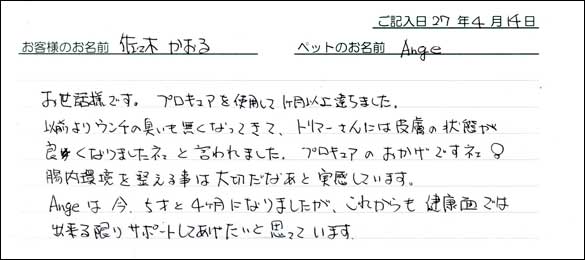 ご記入日27年4月14日
お客様のお名前 佐々木かおる ペットのお名前 Ange
お世話様です。プロキュアを使用して1ヶ月以上達ちました。
以前よりウンチの臭いも無くなってきて、トリマーさんには皮膚の状態が
良くなりましたネェと言われました。プロキュアのおかげですネェ
腸内環境を整える事は大切だなぁと実感しています。
Angeは今、5才と4ヶ月になりましたが、これからも健康面では
出来る限りサポートしてあげたいと思っています。